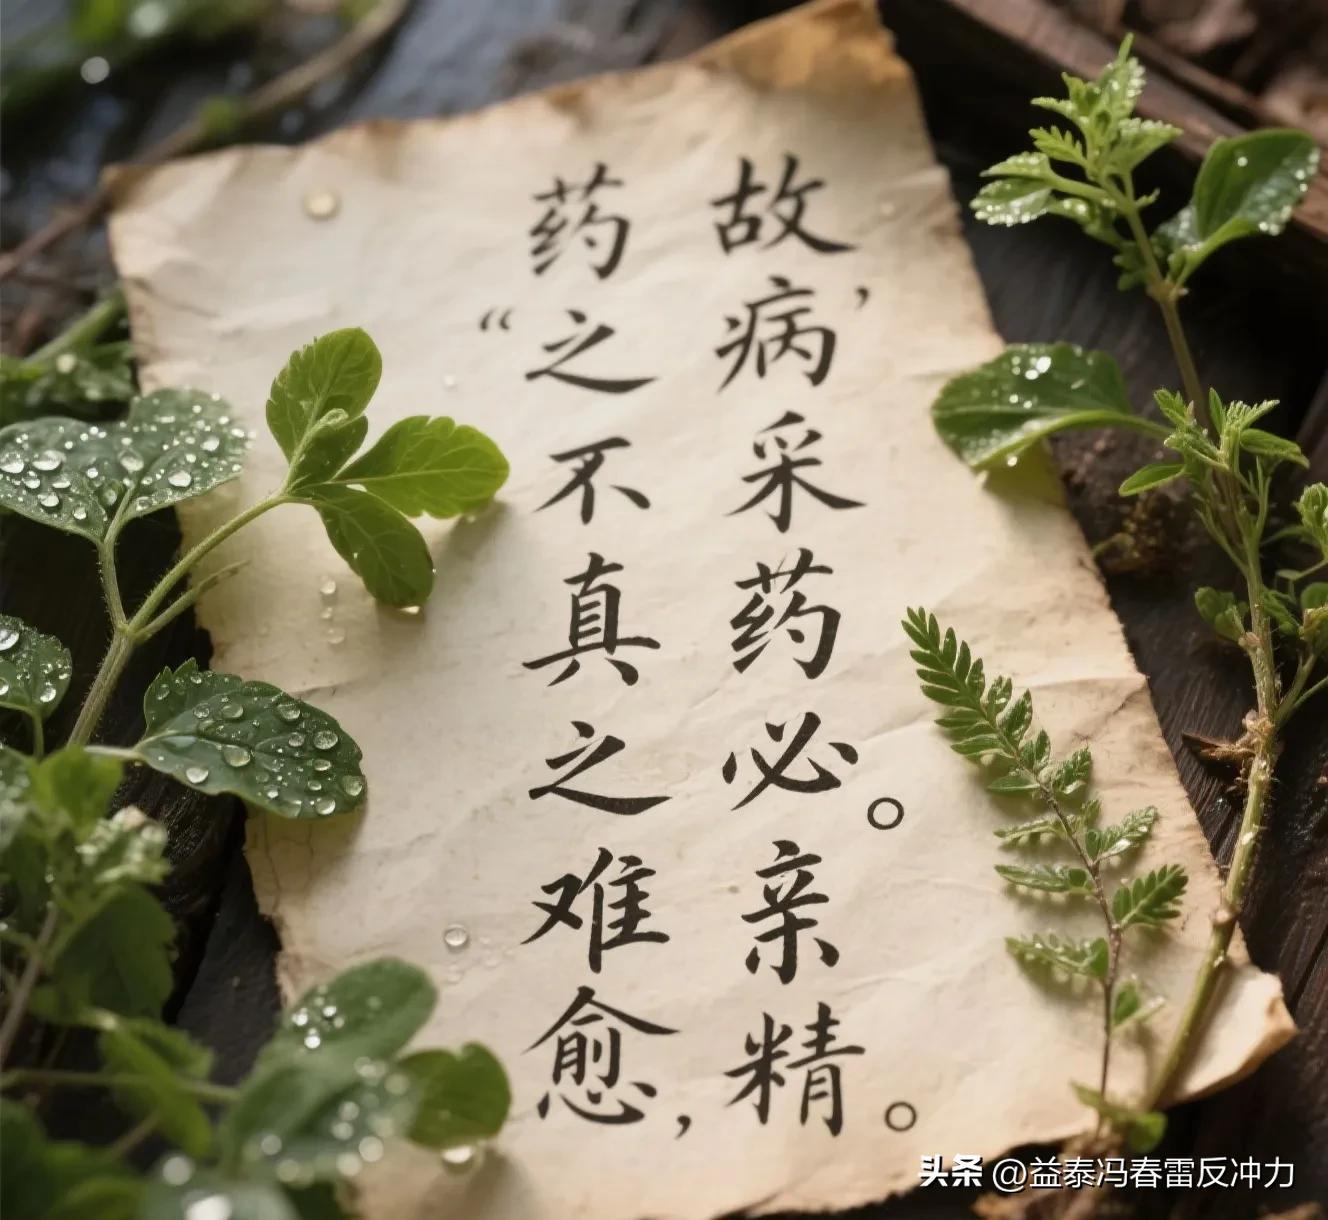 药“之不真之难愈，
故，病采药必。亲精。
头条 @益泰冯春雷反冲力